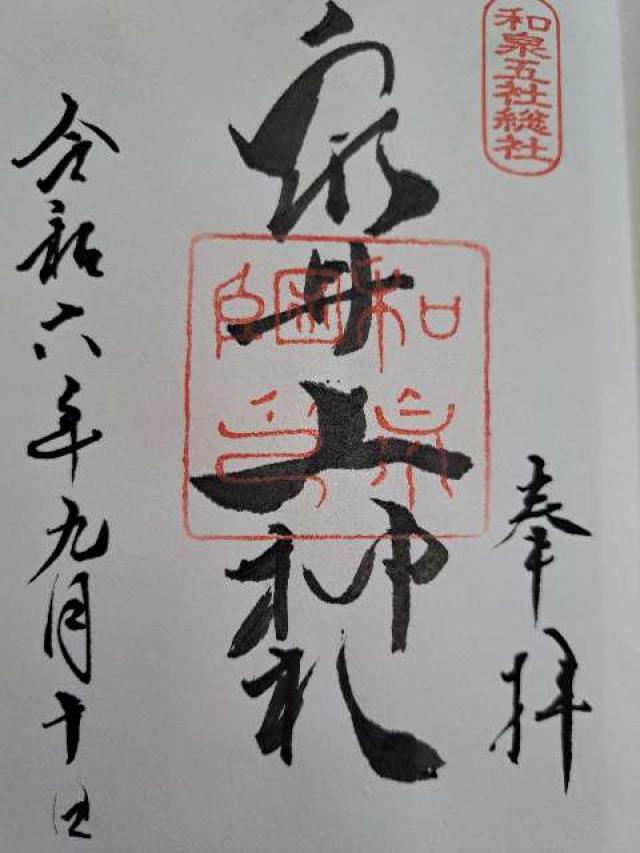 和泉五社総社
奉拝
泉井上神社
令和六年九月十日